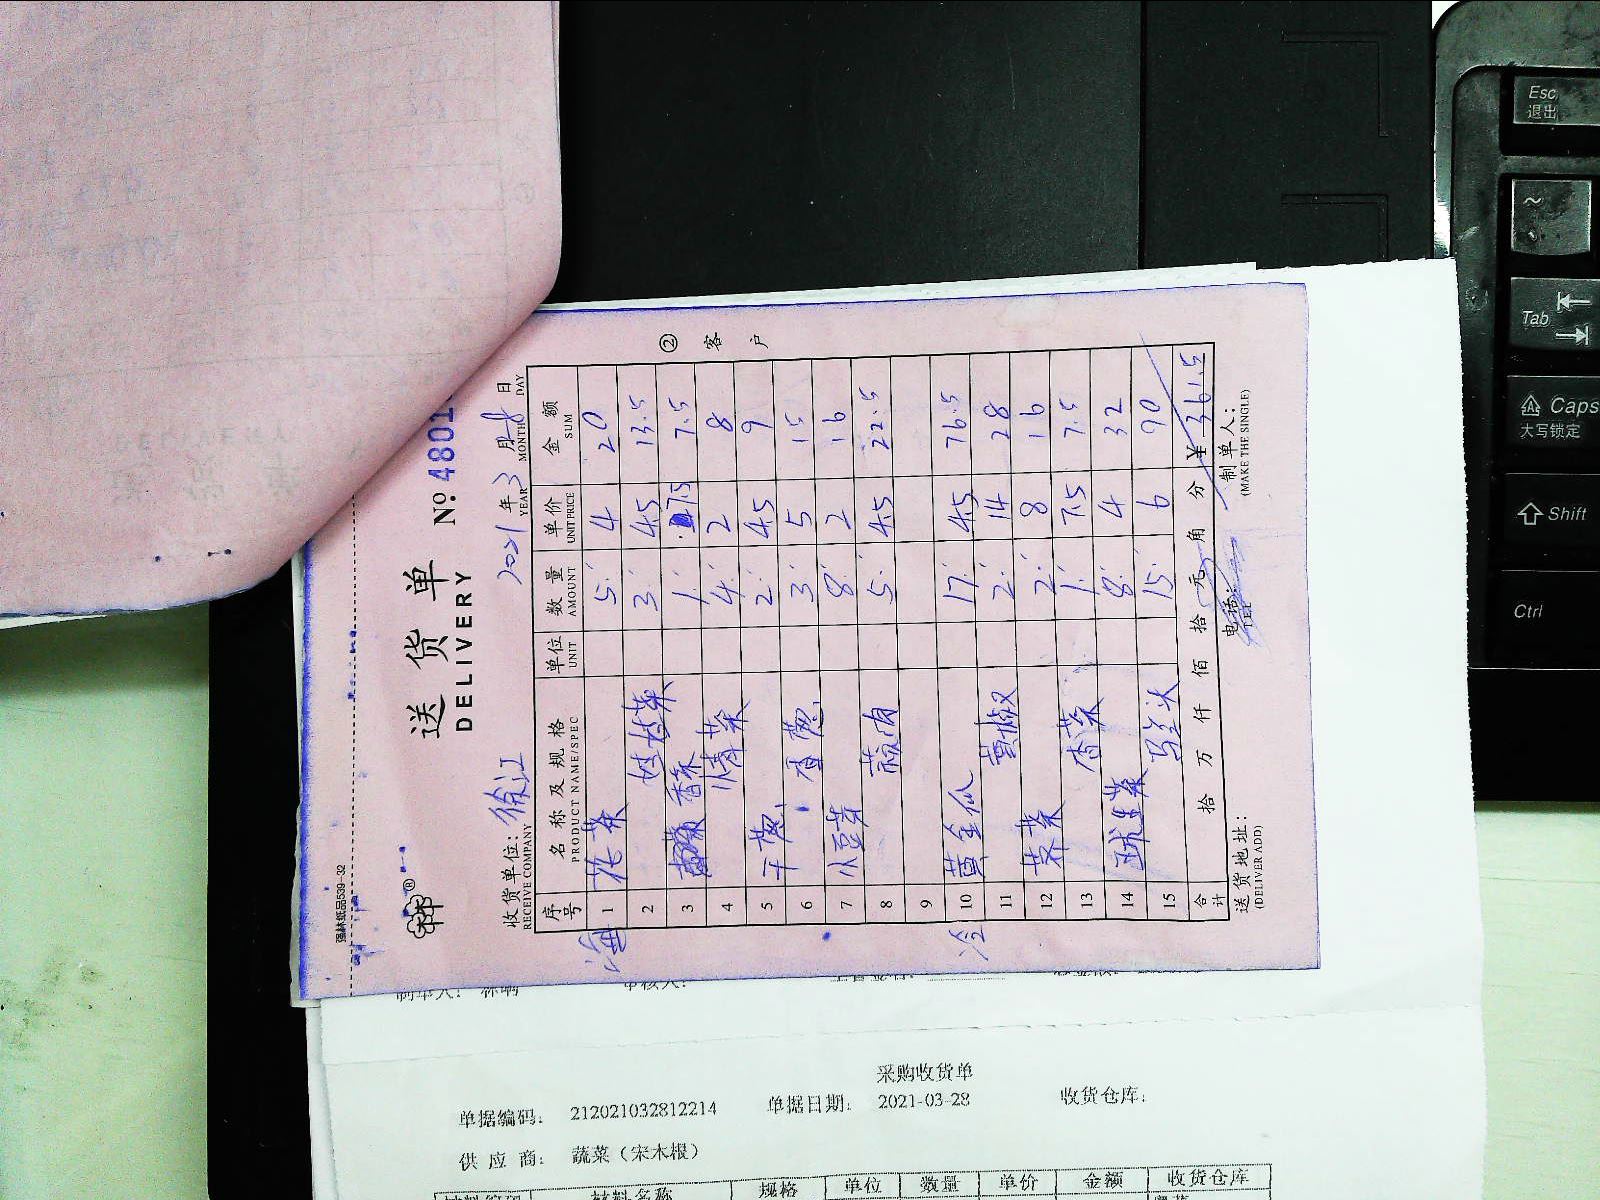 强林纸品539-32
送货单
DELIVERY
No. 4801
收货单位：徐江 2021年3月28日
RECEIVE COMPANY YEAR MONTH DAY
② 客户
序号 名称及规格 单位 数量 单价 金额
PRODUCT NAME/SPEC UNIT AMOUNT UNIT PRICE SUM
1 花菜 5 4 20
2 娃娃菜 3 4.5 13.5
3 香菜 1 7.5 7.5
4 青菜 4 2 8
5 干葱 2 4.5 9
6 香葱 3 5 15
7 小豆芽 8 2 16
8 5 4.5 22.5
9
10 17 4.5 76.5
11 2 14 28
12 2 8 16
13 香菜 1 7.5 7.5
14 球生菜 8 4 32
15 15 6 90
合计 拾 万 仟 佰 拾 元 角 分 ¥ 361.5
送货地址： 电话： 制单人：
(DELIVER ADD) TEL (MAKE THE SINGLE)
采购收货单
单据编码： 212021032812214 单据日期： 2021-03-28 收货仓库：
供应商： 蔬菜（宋木根）
材料编码 材料名称 规格 单位 数量 单价 金额 收货仓库
Esc
退出
~
Tab
Caps
大写锁定
Shift
Ctrl